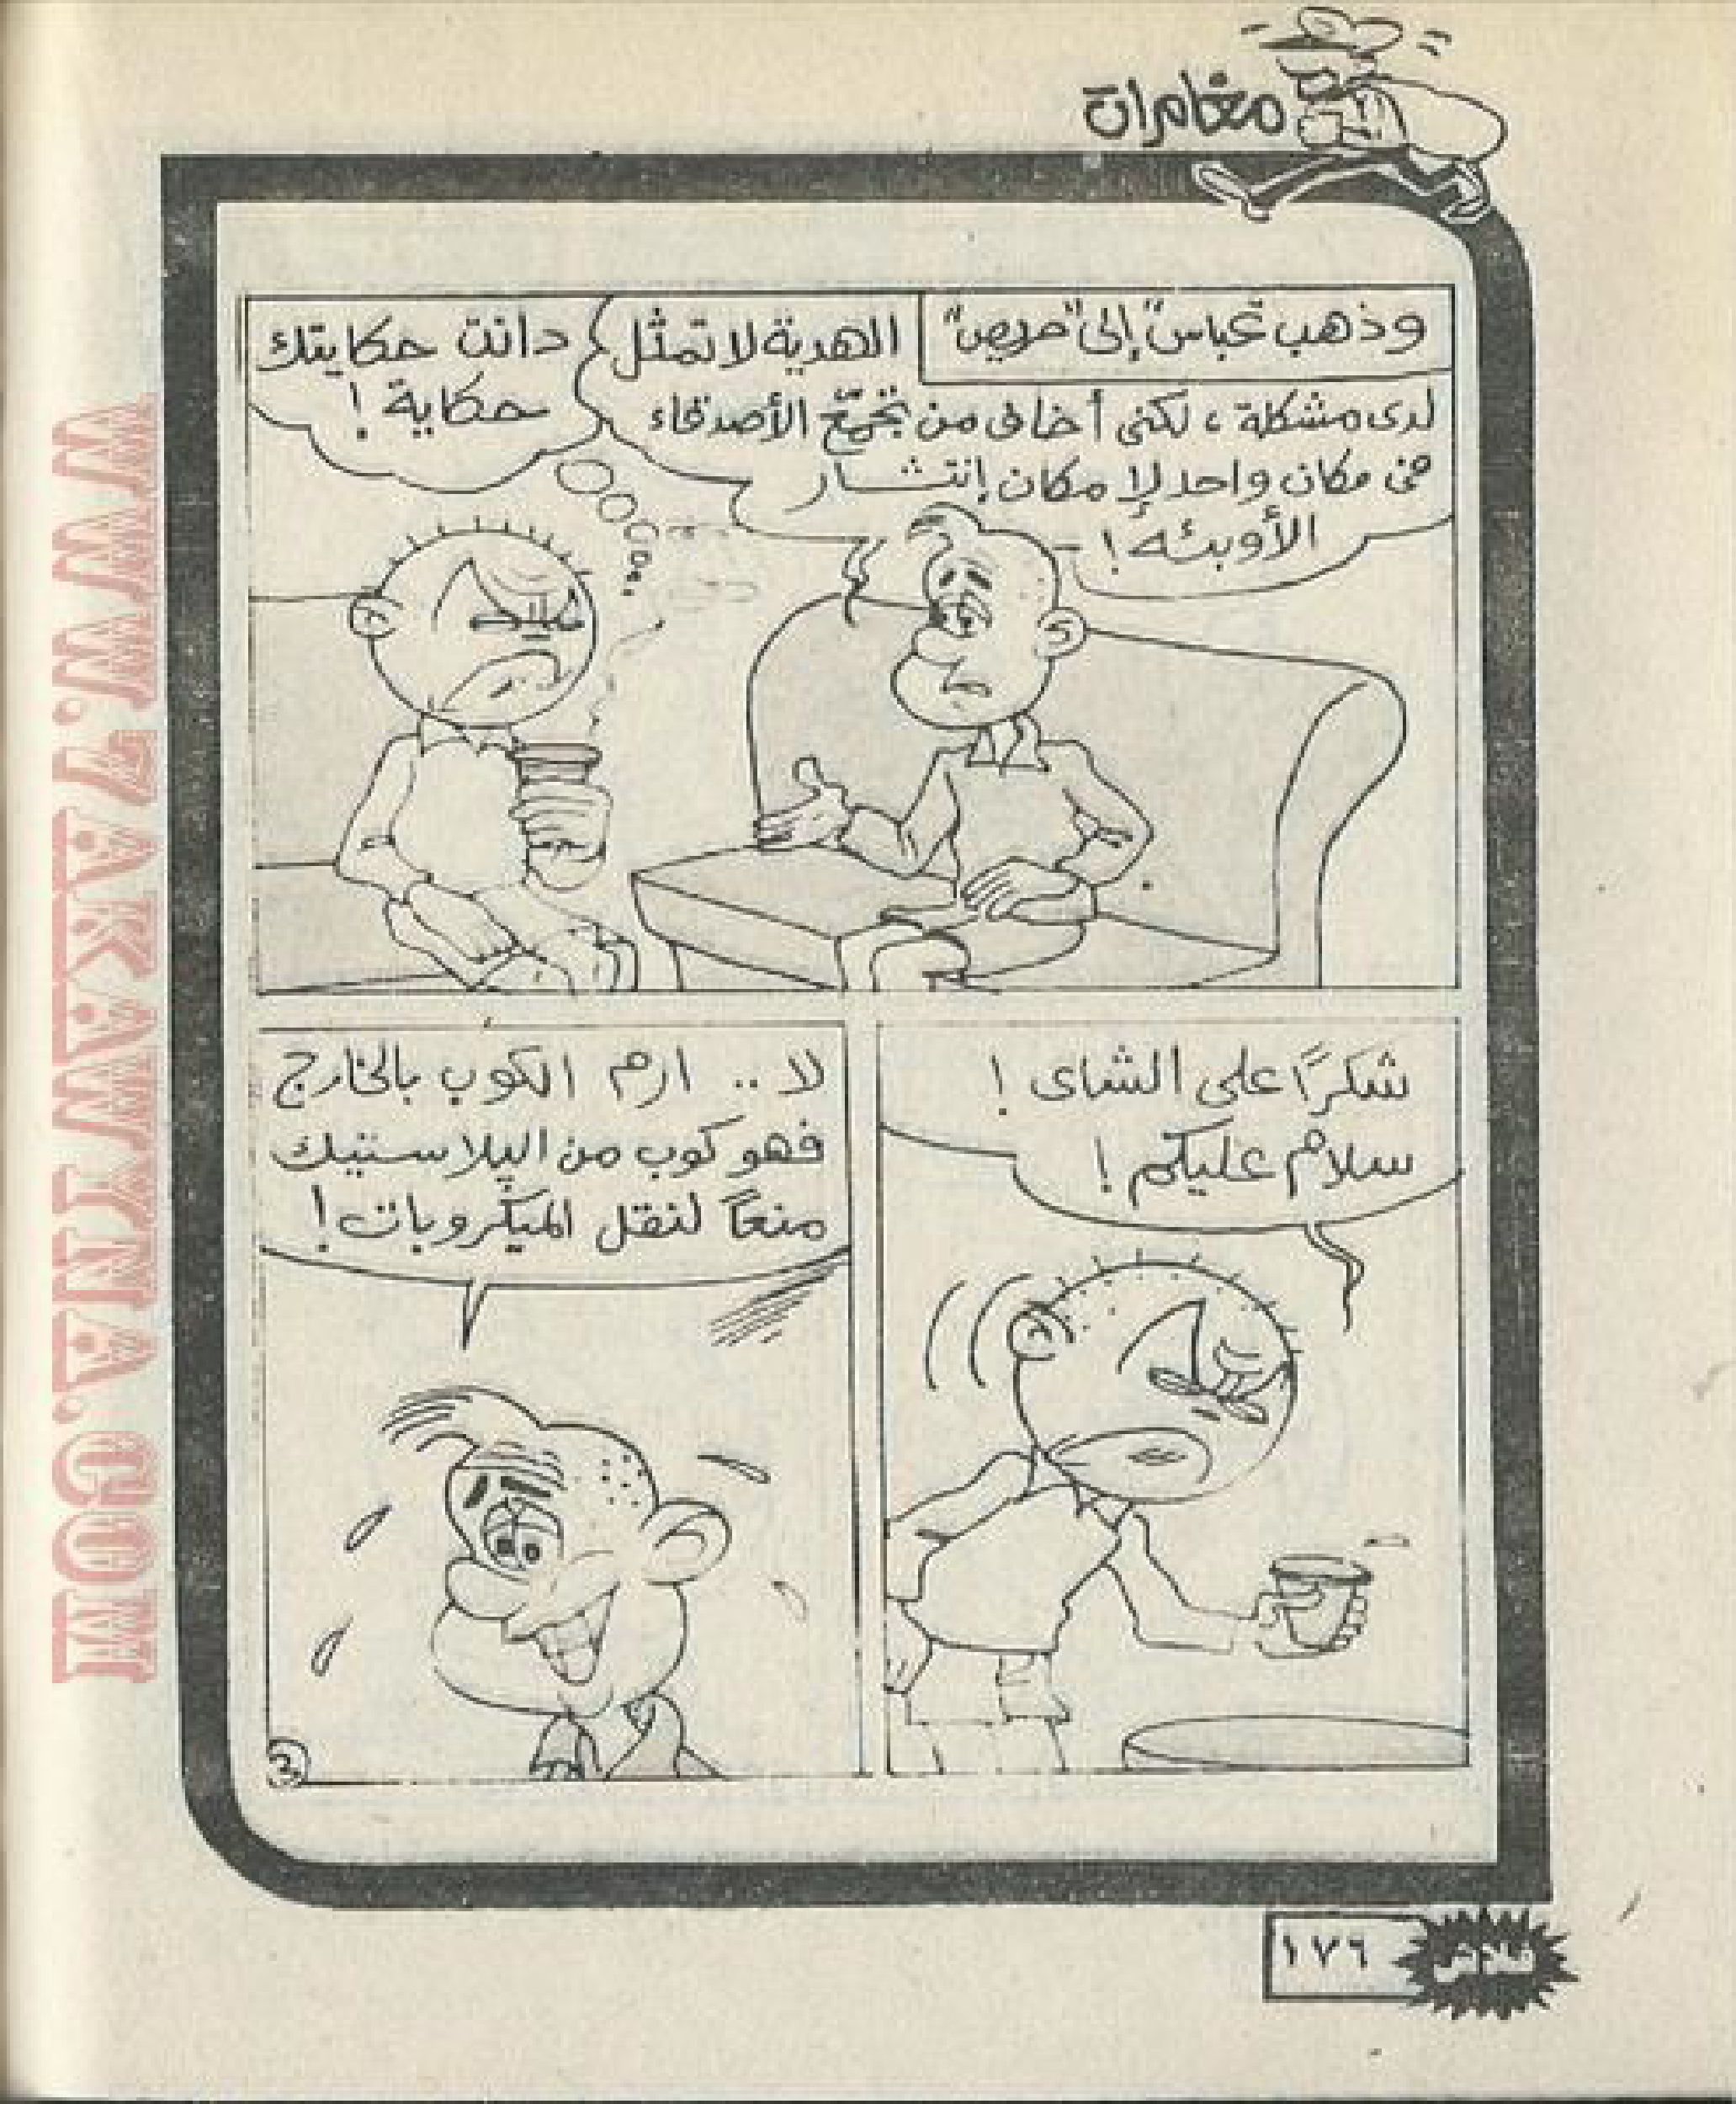 مغامرات
وذهب "عباس" إلى "حريص"
الهدية لا تمثل
لدى مشكلة ، لكنى أخاف من تجمّع الأصدقاء
فى مكان واحد لإمكان إنتشار
الأوبئة !
دانت حكايتك
حكاية !
شكرًا على الشاى !
سلام عليكم !
لا .. ارم الكوب بالخارج
فهو كوب من البلاستيك
منعاً لنقل الميكروبات !
3
فلاش
١٧٦
WWW.ZAKAWITNA.COM